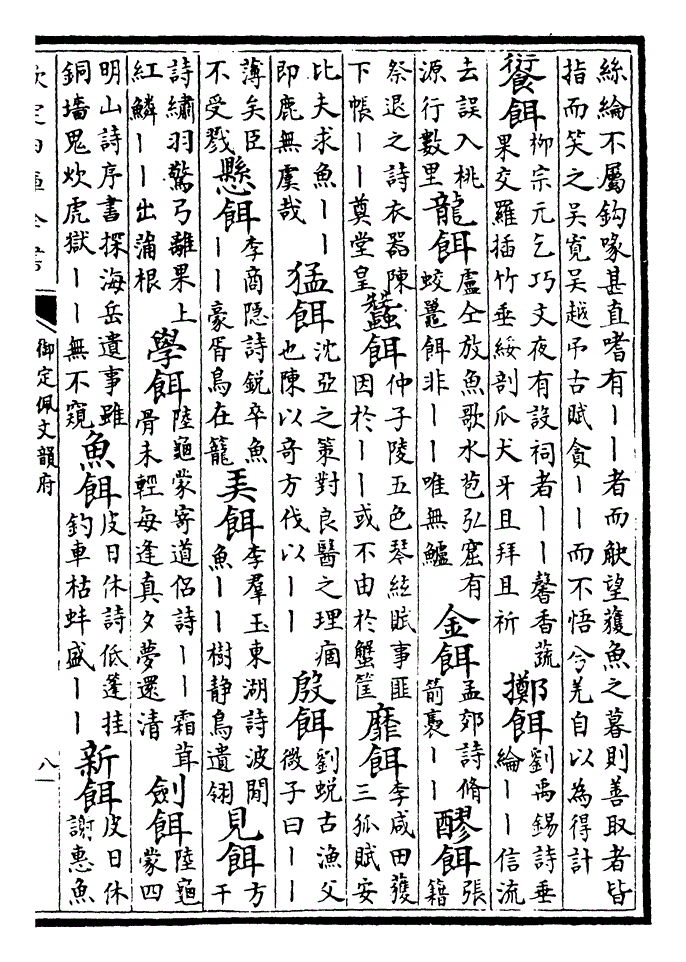 絲綸不屬鈎喙甚直嗜有丨丨者而觖望獲魚之暮則善取者皆
指而笑之吳寛吳越弔古賦貪丨丨而不悟兮羌自以為得計
餰餌
柳宗元乞巧文夜有設祠者丨丨馨香蔬
果交羅插竹垂綏剖瓜犬牙且拜且祈
擲餌
劉禹錫詩垂
綸丨丨信流
去誤入桃
源行數里
龍餌
盧仝放魚歌水苞弘窟有
蛟鼉餌非丨丨唯無鱸
金餌
孟郊詩脩
箭裛丨丨
醪餌
張
籍
祭退之詩衣器陳
下帳丨丨奠堂皇
蠶餌
仲子陵五色琴絃賦事匪
因於丨丨或不由於蟹筐
靡餌
李咸田獲
三狐賦安
比夫求魚丨丨
即鹿無虞哉
猛餌
沈亞之策對良醫之理痼
也陳以奇方伐以丨丨
殷餌
劉蛻古漁父
微子曰丨丨
薄矣臣
不受戮
懸餌
李商隠詩鋭卒魚
丨丨豪胥鳥在籠
美餌
李羣玉東湖詩波閒
魚丨丨樹静鳥遺翎
見餌
方
干
詩繡羽驚弓離果上
紅鱗丨丨出蒲根
學餌
陸龜蒙寄道侣詩丨丨霜茸
骨未輕每逢真夕夢還清
劍餌
陸龜
蒙四
明山詩序書探海岳遺事雖
銅墻鬼炊虎獄丨丨無不窺
魚餌
皮日休詩低蓬挂
釣車枯蚌盛丨丨
新餌
皮日休
謝惠魚
欽定四庫全書
御定佩文韻府